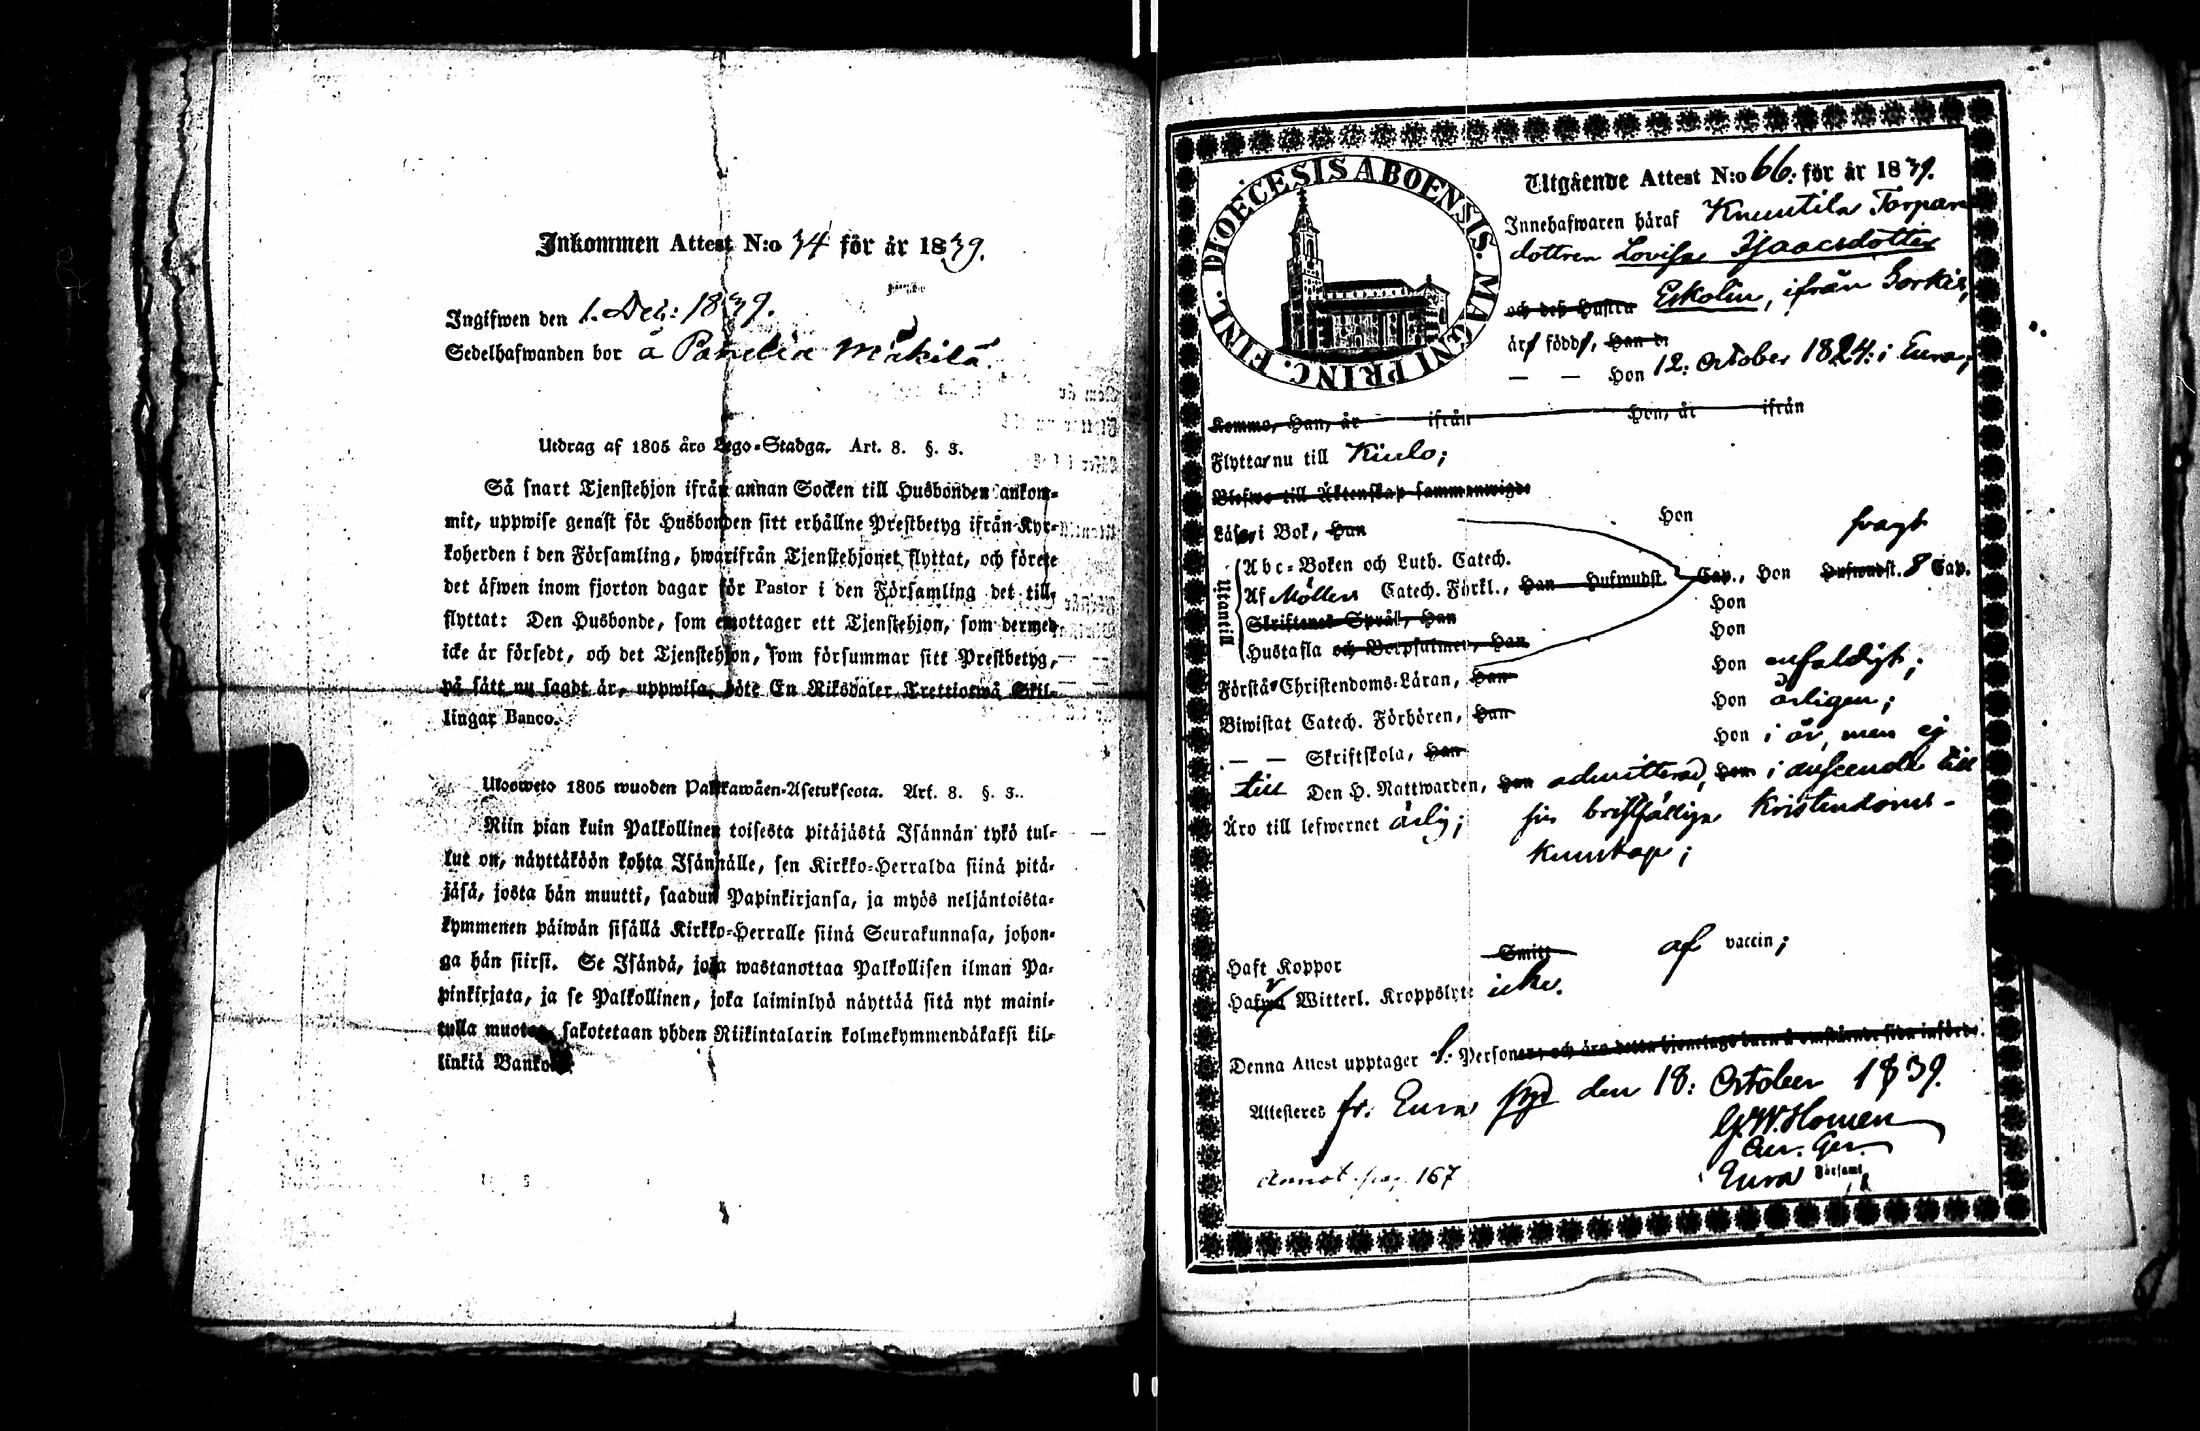 Inkommen Attest N:o 34 för år 1839.
Ingifwen den 1. Dec: 1839.
Sedelhafwanden bor å Panelia Mäkilä.
Utdrag af 1805 års Lego-Stadga. Art. 8. §. 3.
Så snart Tjenstehjon ifrån annan Socken till Husbonden ankom-
mit, uppwise genast för Husbonden sitt erhållne Prestbetyg ifrån Kyr-
koherden i den Församling, hwarifrån Tjenstehjonet flyttat, och förete
det äfwen inom fjorton dagar för Pastor i den Församling det till-
flyttat: Den Husbonde, som emottager ett Tjenstehjon, som dermed
icke är försedt, och det Tjenstehjon, som försummar sitt Prestbetyg,
på sätt nu sagdt är, uppwisa, böte En Riksdaler Trettiotwå Skil-
lingar Banco.
Uloosweto 1805 wuoden Palkkawäen-Asetuksesta. Art. 8. §. 3.
Niin pian kuin Palkollinen toisesta pitäjästä Isännän tykö tul-
lut on, näyttäköön kohta Isännälle, sen Kirkko-Herralda siinä pitä-
jäsä, josta hän muutti, saadun Papinkirjansa, ja myös neljäntoista-
kymmenen päiwän sisällä Kirkko-Herralle siinä Seurakunnasa, johon-
ga hän siirsi. Se Isändä, joka wastanottaa Palkollisen ilman Pa-
pinkirjata, ja se Palkollinen, joka laiminlyö näyttää sitä nyt maini-
tulla muotoa, sakotetaan yhden Riikintalarin kolmekymmendäkaksi kil-
linkiä Bankosa.
DIOECESIS ABOENSIS. MAGNI PRINC. FINL.
Utgående Attest N:o 66: för år 1839.
Innehafwaren häraf Knuutila Torpare
dottren Lovisa Isaacsdotter
och deß Hustru Eskolin, ifrån Sorkis,
är född, Han d.
— — Hon 12: October 1824: i Eura;
Komme, Han, år ifrån Hon, år ifrån
Flyttar nu till Kiulo;
Blefwo till Äktenskap sammanwigde
Läser i Bok, Han Hon svagt
Utantill
Abc-Boken och Luth. Catech.
Af Möllers Catech. Förkl., Han Hufwudst. Cap., Hon Hufwudst. 8 Cap.
Skriftenes Språk, Han Hon
Hustafla och Botpsalmer, Han Hon
Förstå Christendoms-Läran, Han Hon enfaldigt;
Biwistat Catech. Förhören, Han Hon årligen;
— — Skriftskola, Han Hon i år, men ej
till Den H. Nattwarden, Han admitterad, Hon i anseende till
Äro till lefwernet ärlig; sin bristfällige Kristendoms-
kunskap;
Haft Koppor Smitt af vaccin;
Hafwa Witterl. Kroppslyte icke.
Denna Attest upptager 1. Personer, och äro detta hjonelags barn å omstående sida införde.
Attesteras fr. Eura den 18: October 1839.
G. W. Homen
Cur. Ger.
Eura Församl.
Annot. pag. 167